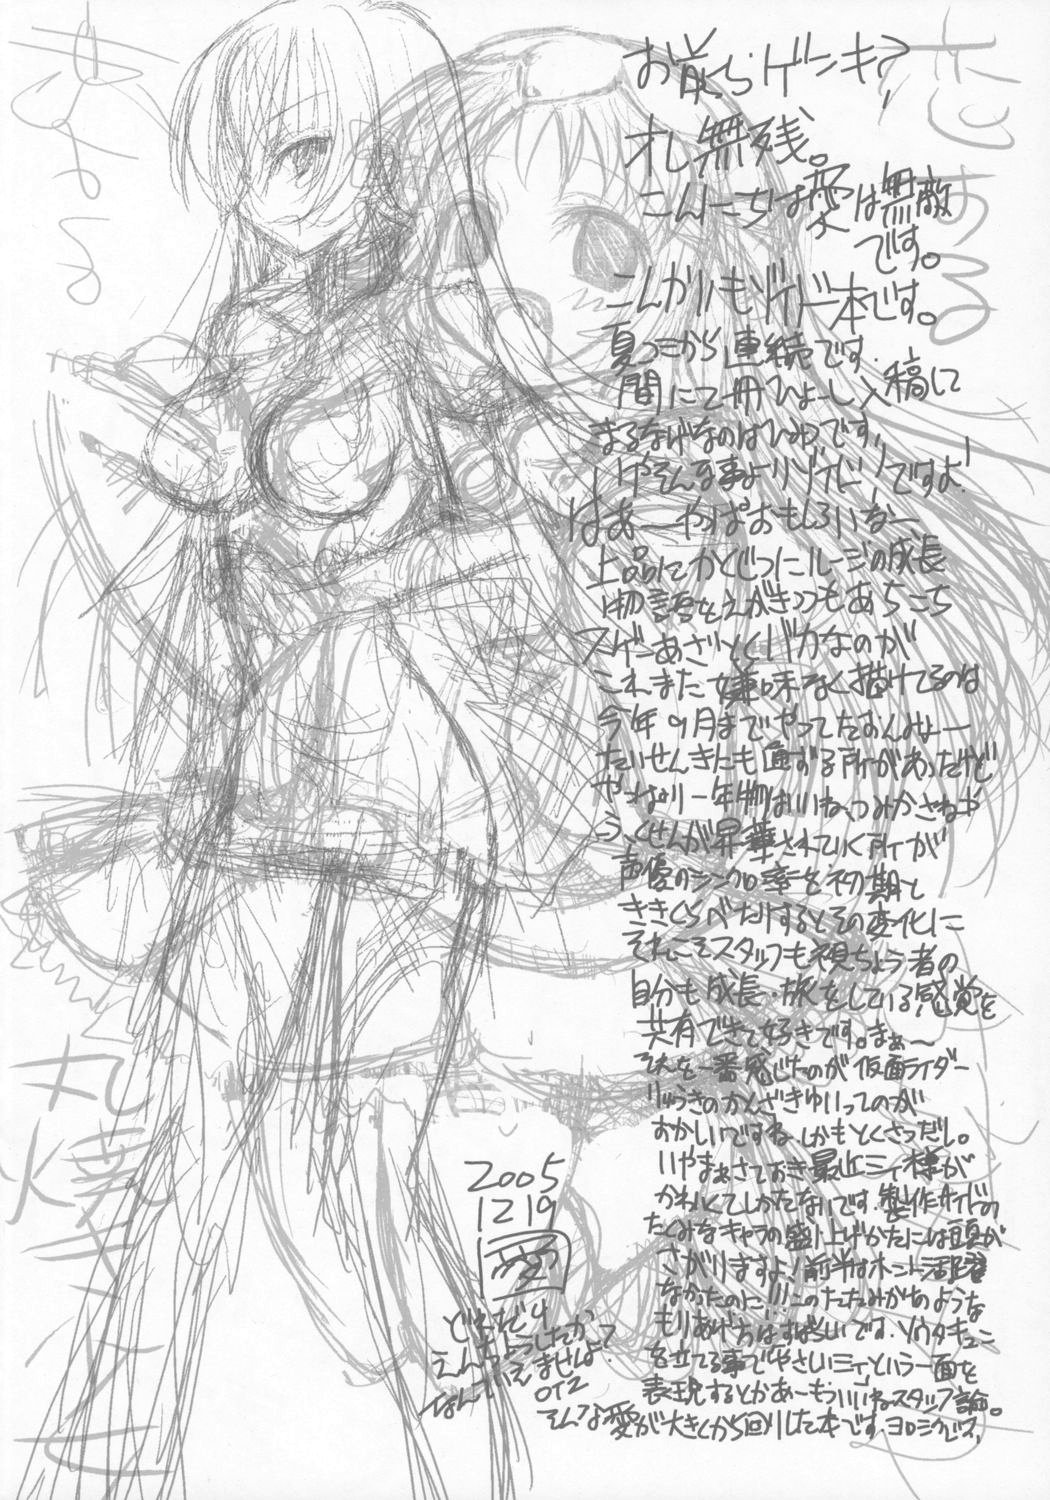 お前らゲンキ?
札無残。
こんにちは愛は無敵
です。
こんかいもゾイド本です。
夏コミから連続です。
間にて冊ひょーし入稿に
まるなげなのはひみつです!
いやそんな事よりゾイド!ですよ!
はあーやっぱおもしろいなー
上品にかくじつにルージの成長
物語をえがきつつもあちこち
スゲーあざとくバカなのが
これまた嫌味なく描けてるのは
今年9月までやってたおんみょー
たいせんきにも通ずる所があったけど
やっぱり一年物はいいね、つみかさねや
ふくせんが昇華されていく所が
声優のシンクロ率を初期と
ききくらべたりするとその変化に
それこそスタッフも視ちょう者の
自分も成長・旅をしている感覚を
共有できて好きです。まぁ〜
それを一番感じたのが仮面ライダー
ひびきのかんざきゆいってのが
おかしいですね、しかもとくさつだし。
いやまぁさておき最近ミィ様が
かわいくてしかたないです。製作サイドの
たくみなキャラの盛り上げかたには頭が
さがりますよ!前半はホント活躍
なかったのに!!このたたみかけのような
もりあげ方はすばらしいです。ソウタキュンに
を立てる事でやさしいミィという一面を
表現するとかあーもういいねスタッフ論。
そんな愛が大きくから回りした本です。ヨロシクです。
2005
12 19
愛
どれだけ
えんちょうしてたか
なんていえませんよ?
OTZ
丸焼き